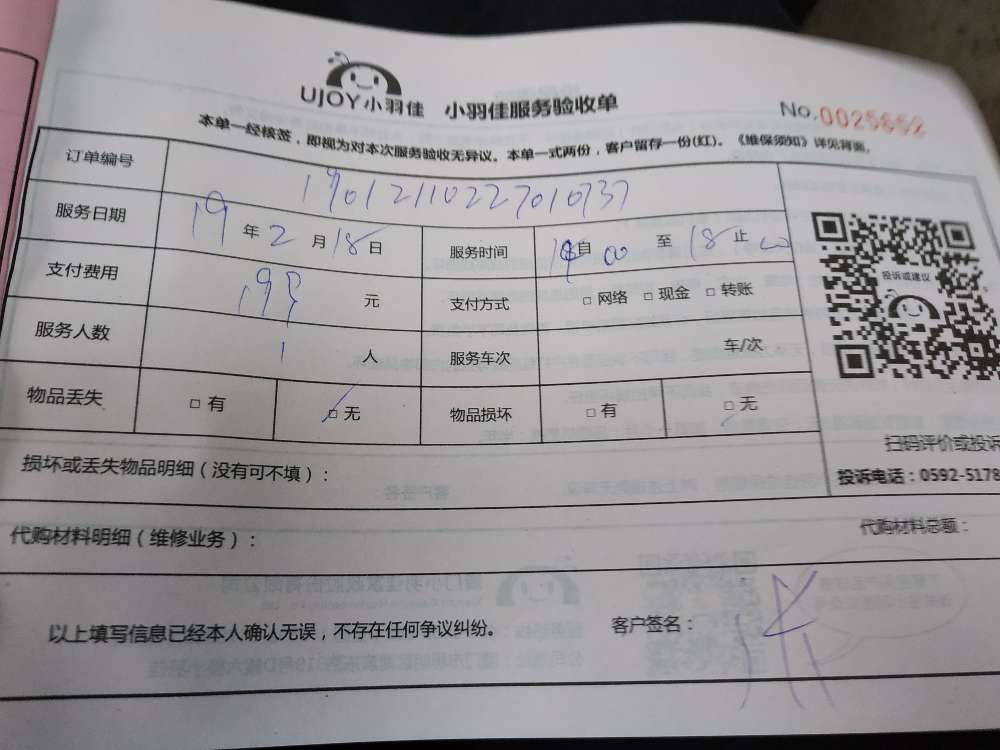 UJOY小羽佳 小羽佳服务验收单
No.0025652
本单一经核签，即视为对本次服务验收无异议。本单一式两份，客户留存一份(红)。《维保须知》详见背面。
订单编号 19012110227010737
服务日期 19年2月18日 服务时间 14自00至18止00
支付费用 199元 支付方式 □网络 □现金 □转账
服务人数 1人 服务车次 车/次
物品丢失 □有 □无 物品损坏 □有 □无
投诉或建议
扫码评价或投诉
投诉电话：0592-5178
损坏或丢失物品明细（没有可不填）：
代购材料明细（维修业务）： 代购材料总额：
以上填写信息已经本人确认无误，不存在任何争议纠纷。 客户签名：